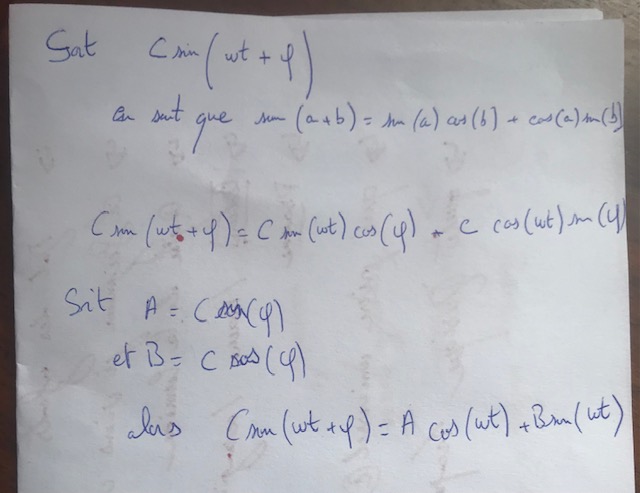 Soit C sin (ωt + φ)
On sait que sin (a+b) = sin (a) cos (b) + cos(a) sin (b)
C sin (ωt + φ) = C sin (ωt) cos (φ) + C cos (ωt) sin (φ)
Soit A = C sin(φ)
et B = C cos (φ)
alors C sin (ωt + φ) = A cos (ωt) + B sin (ωt)